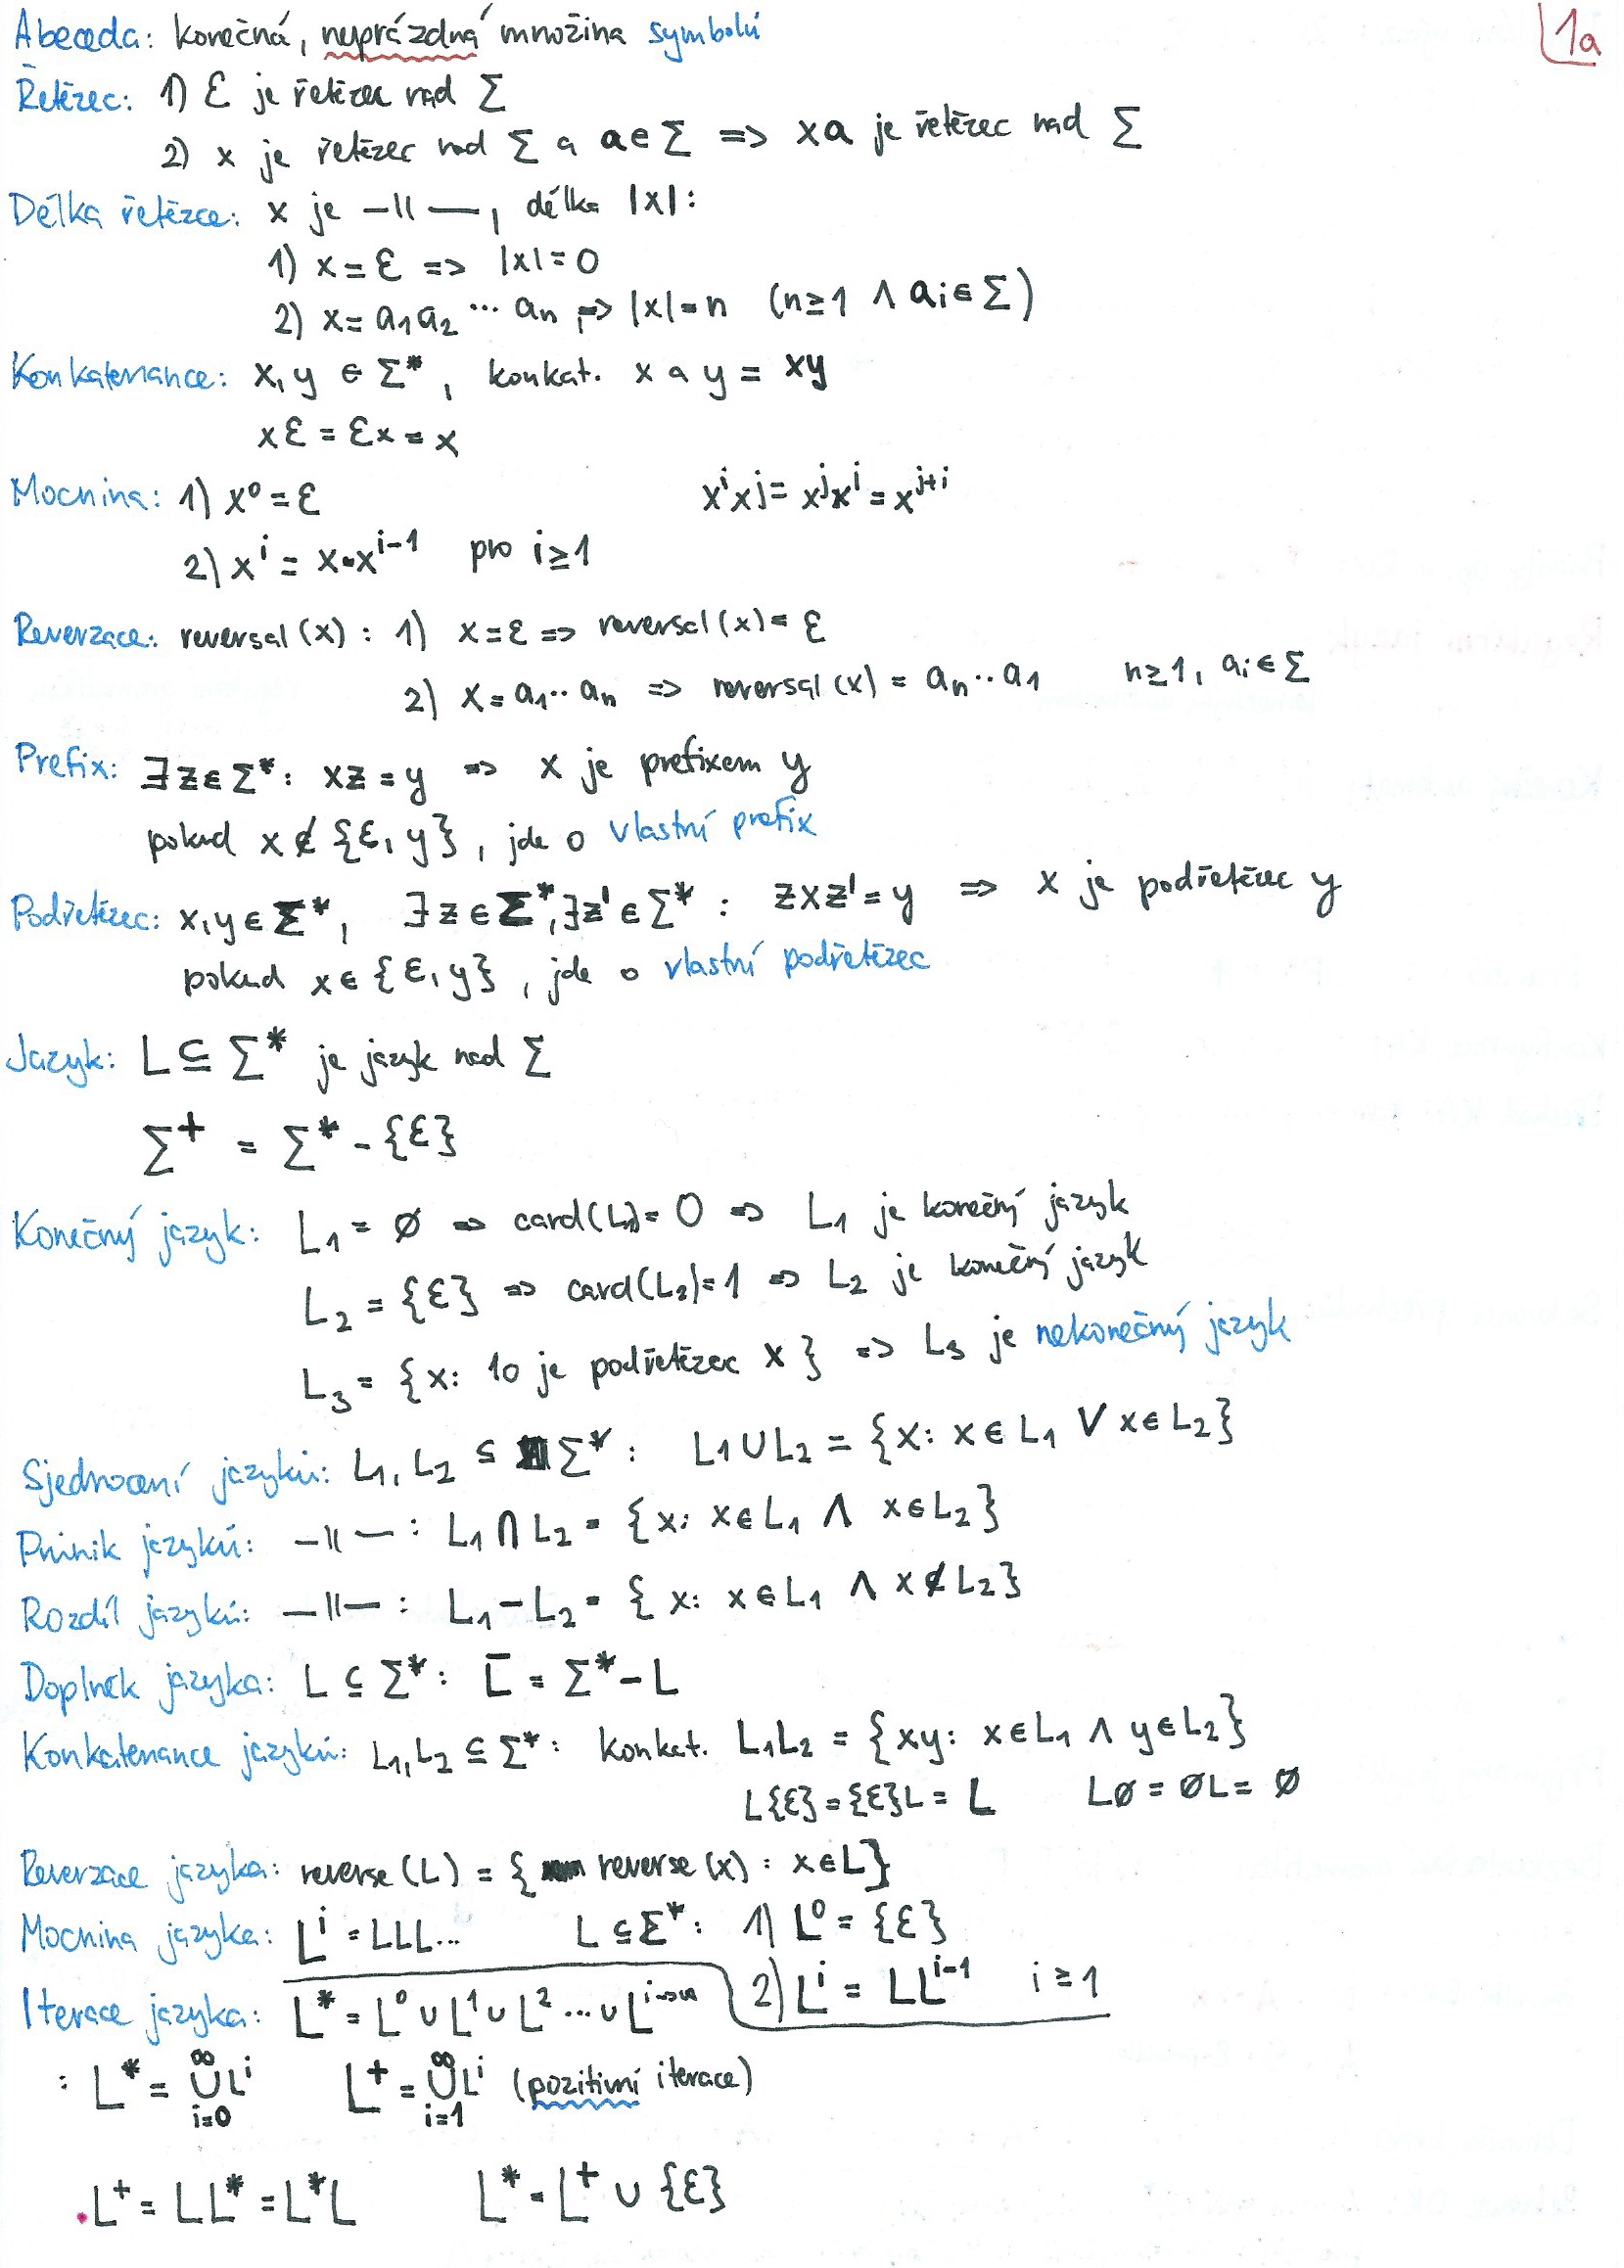 Abeceda: konečná, neprázdná množina symbolů
1a
Řetězec: 1) ε je řetězec nad Σ
2) x je řetězec nad Σ a a∈Σ => xa je řetězec nad Σ
Délka řetězce: x je —||—, délka |x|:
1) x = ε => |x| = 0
2) x = a₁a₂ ... aₙ => |x| = n (n≥1 ∧ aᵢ∈Σ)
Konkatenance: x, y ∈ Σ*, konkat. x a y = xy
xε = εx = x
Mocnina: 1) x⁰ = ε xⁱxʲ = xʲxⁱ = xʲ⁺ⁱ
2) xⁱ = x·xⁱ⁻¹ pro i≥1
Reverzace: reversal(x): 1) x = ε => reversal(x) = ε
2) x = a₁..aₙ => reversal(x) = aₙ..a₁ n≥1, aᵢ∈Σ
Prefix: ∃z∈Σ*: xz = y => x je prefixem y
pokud x ∉ {ε, y}, jde o vlastní prefix
Podřetězec: x,y ∈ Σ*, ∃z∈Σ*,∃z'∈Σ*: zxz' = y => x je podřetězec y
pokud x ∈ {ε, y}, jde o vlastní podřetězec
Jazyk: L ⊆ Σ* je jazyk nad Σ
Σ⁺ = Σ* - {ε}
Konečný jazyk: L₁ = ∅ => card(L₁) = 0 => L₁ je konečný jazyk
L₂ = {ε} => card(L₂) = 1 => L₂ je konečný jazyk
L₃ = {x: 10 je podřetězec x} => L₃ je nekonečný jazyk
Sjednocení jazyků: L₁, L₂ ⊆ Σ*: L₁ ∪ L₂ = {x: x∈L₁ ∨ x∈L₂}
Průnik jazyků: —||—: L₁ ∩ L₂ = {x: x∈L₁ ∧ x∈L₂}
Rozdíl jazyků: —||—: L₁ - L₂ = {x: x∈L₁ ∧ x∉L₂}
Doplněk jazyka: L ⊆ Σ*: L̅ = Σ* - L
Konkatenance jazyků: L₁, L₂ ⊆ Σ*: konkat. L₁L₂ = {xy: x∈L₁ ∧ y∈L₂}
L{ε} = {ε}L = L L∅ = ∅L = ∅
Reverzace jazyka: reverse(L) = {reverse(x): x∈L}
Mocnina jazyka: Lⁱ = LLL... L ⊆ Σ*: 1) L⁰ = {ε}
2) Lⁱ = LLⁱ⁻¹ i ≥ 1
Iterace jazyka: L* = L⁰ ∪ L¹ ∪ L² ... ∪ L^(i→∞)
: L* = ⋃_{i=0}^{∞} Lⁱ L⁺ = ⋃_{i=1}^{∞} Lⁱ (pozitivní iterace)
. L⁺ = LL* = L*L L* = L⁺ ∪ {ε}